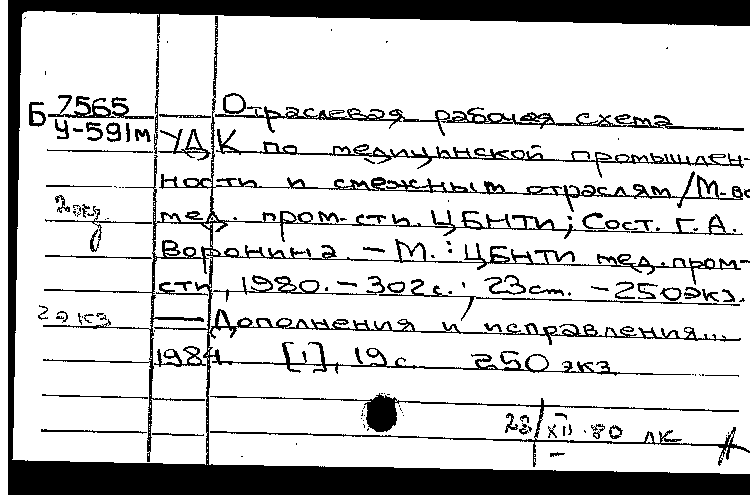 Б 7565 Отраслевая рабочая схема
У-591м УДК по медицинской промышлен-
ности и смежным отраслям / М-во
2 экз мед. пром-сти. ЦБНТИ; Сост. Г. А.
Воронина. – М. : ЦБНТИ мед. пром-
сти, 1980. – 302 с. ; 23 см. – 250 экз.
2 экз — Дополнения и исправления...
1984. [1], 19 с. 250 экз.
28/XII.80 лк